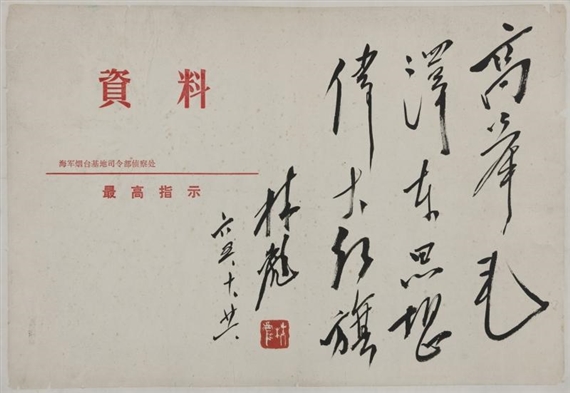 高舉毛
澤东思想
偉大红旗
林彪
六五、十、
資料
海军烟台基地司令部侦察处
最高指示